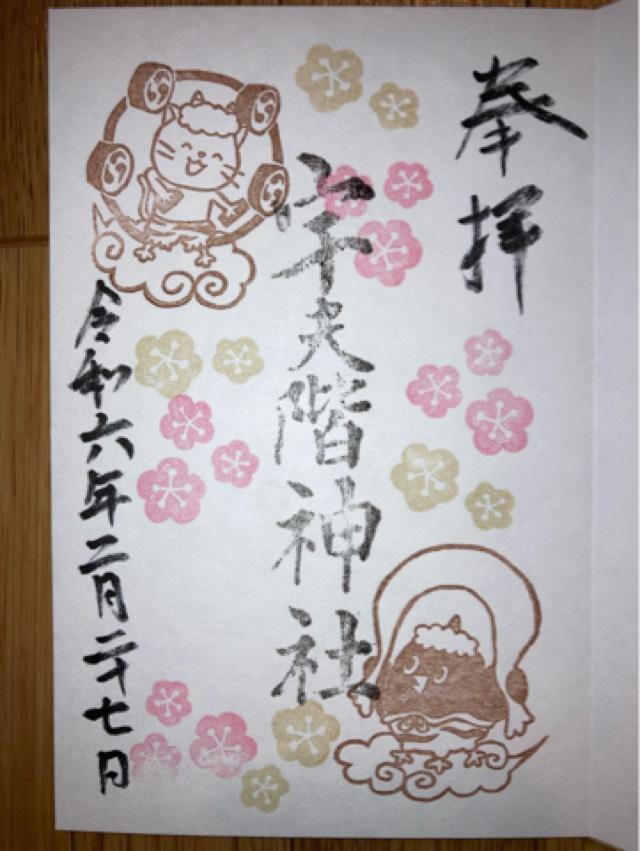 奉拝
宇夫階神社
令和六年二月二十七日